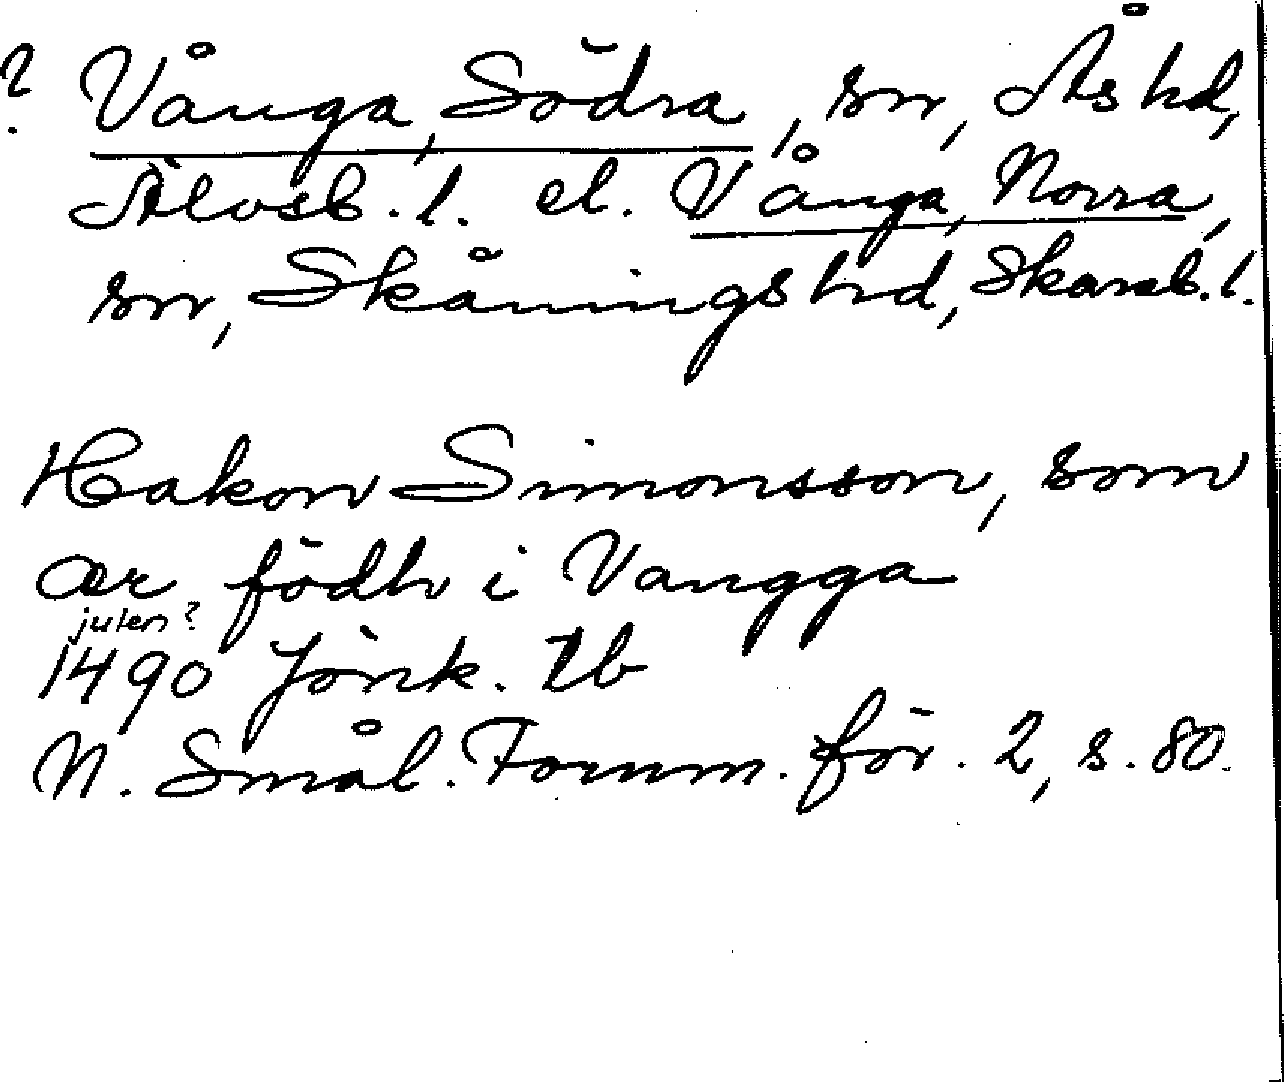 ? Vånga, Södra, sn, Ås hd,
Älvsb. l. el. Vånga, Norra,
sn, Skånings hd, Skarab. l.
Hakon Simonsson, som
ær födh i Vangga
julen?
1490 Jönk. tb
N. Smål. Fornm. för. 2, s. 80.